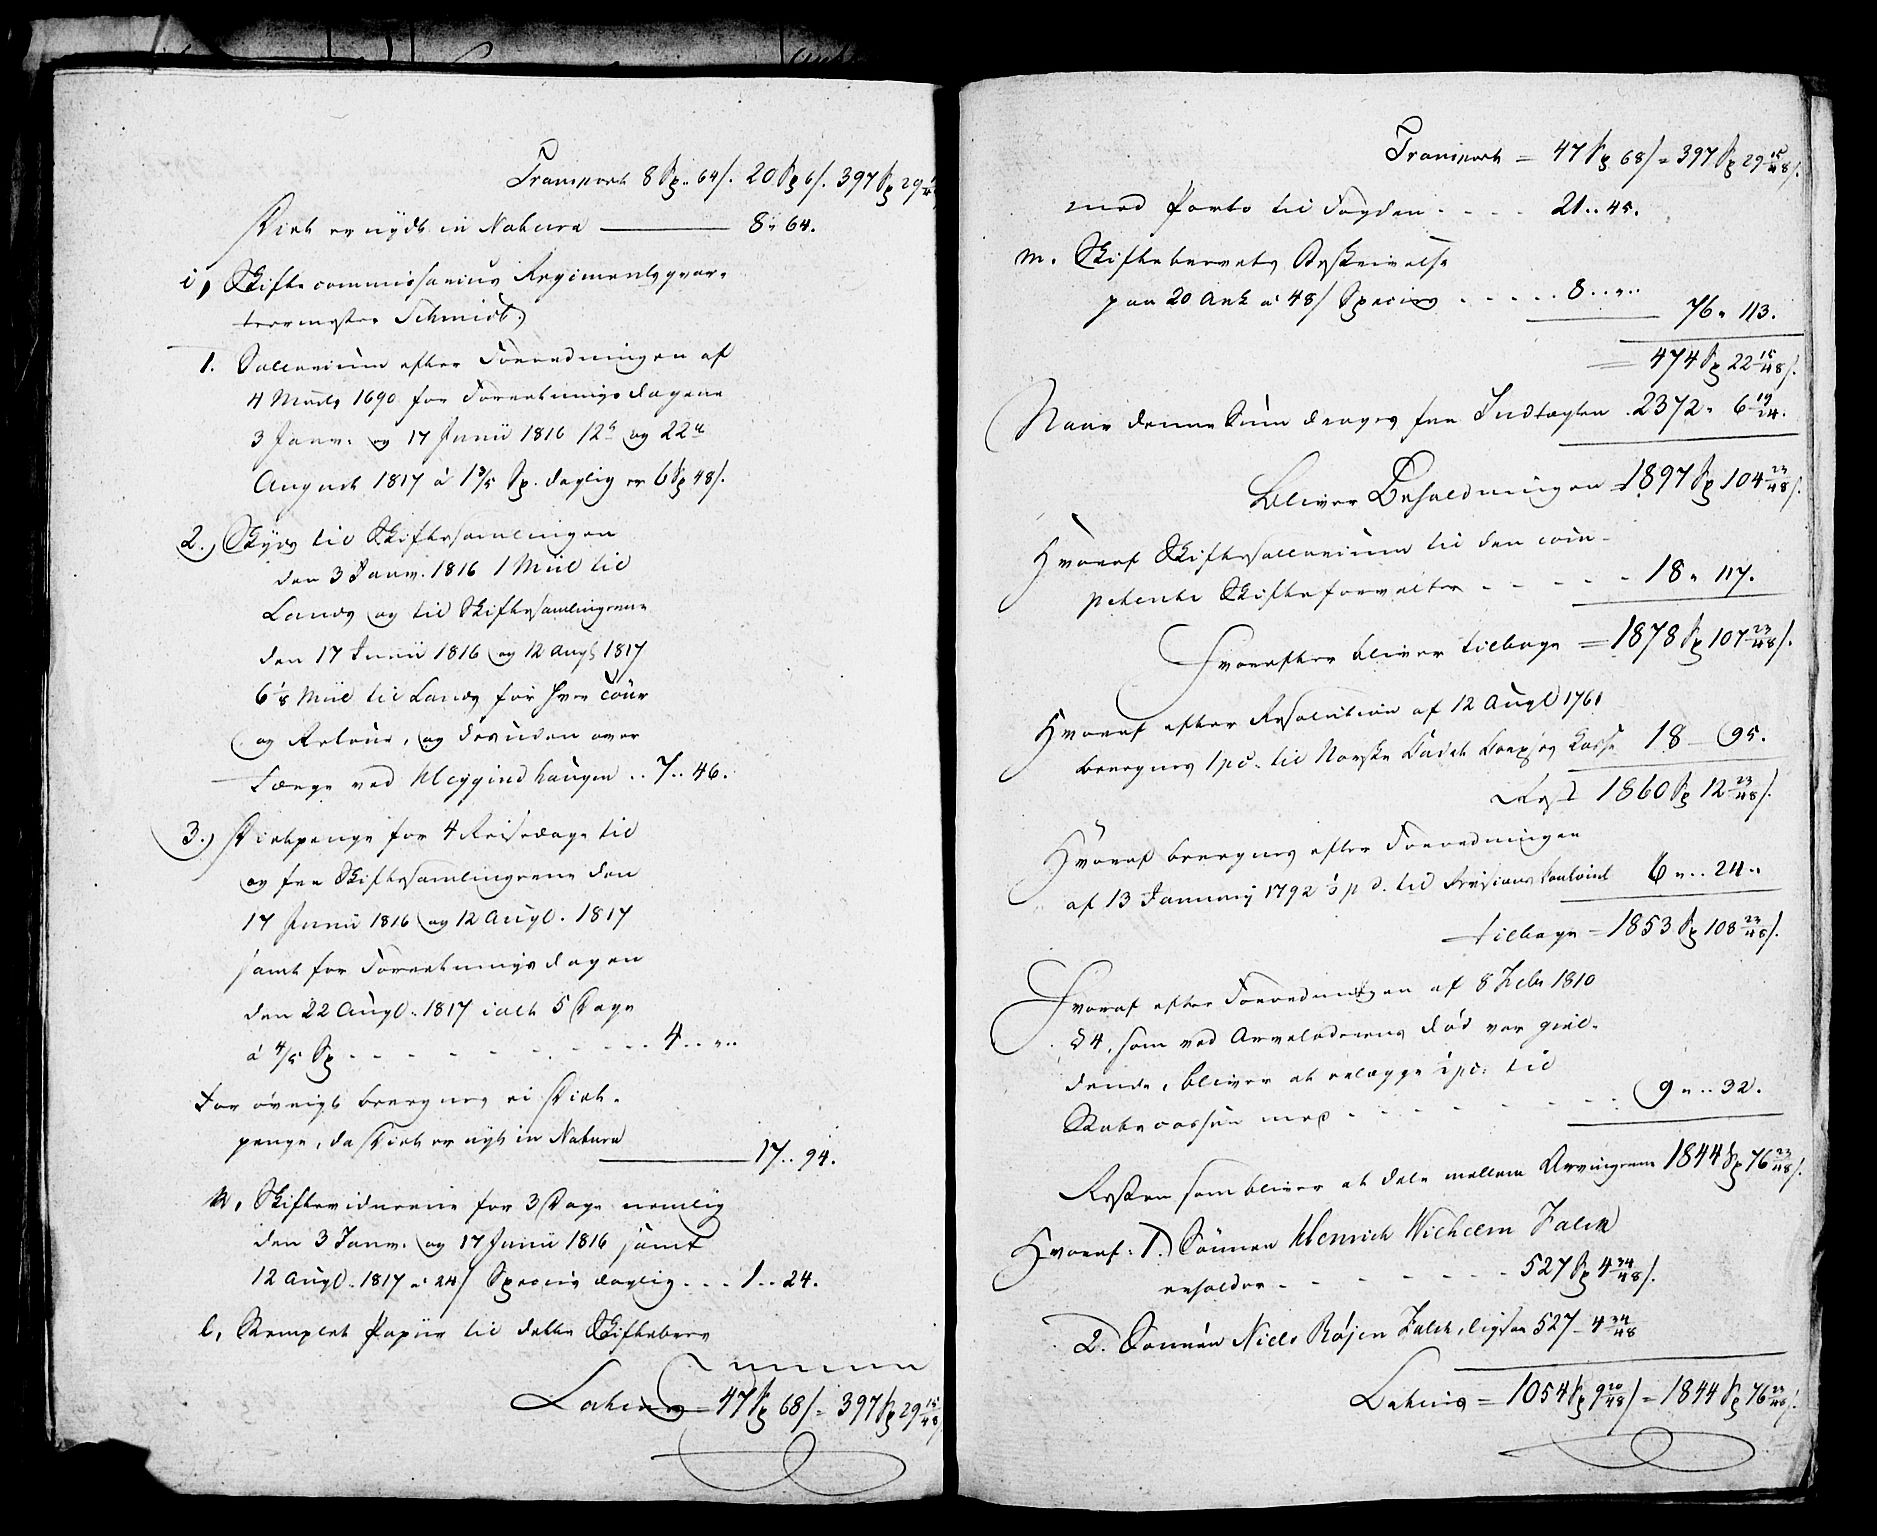 Transport 8 Sp. 64 s. 20 Sp 6 s. 397 Sp 29 15/48
Kost er nydt in Natura — 8 " 64.
i, Skiftecommissarius Regimentsqvar-
teermester Schmidt)
1. Sallarium efter Forordningen af
4 Marts 1690 for Forretningsdagene
3 Janv. og 17 Junii 1816 12te og 22de
August 1817 á 1 3/5 Sp. daglig er 6 Sp 48 s.
2.) Skyds til Skiftesamlingen
den 3 Janv. 1816 1 Miil til
Lands og til Skiftesamlingerne
den 17 Junii 1816 og 12 Augt 1817
6 1/8 Miil til Lands for hver Tour
og Retour, og desuden over
Færge ved Heggindhaugen .. 7 .. 46.
3.) Kostpenge for 4 Reisedage til
og fra Skiftesamlingerne den
17 Junii 1816 og 12 Augt. 1817
samt for Forretningsdagen
den 22 Augt. 1817 ialt 5 Dage
á 4/5 Sp - - - - - - 4 .. " ..
For øvrigt beregnes ei Kost-
penge, da Kost er nydt in Natura
— 17 .. 94.
k, Skiftevidnerne for 3 Dage nemlig
den 3 Janv. og 17 Junii 1816 samt
12 Augt. 1817 a 24 s Species daglig ... 1 .. 24.
l, Stemplet Papiir til dette Skiftebrev
Lateris = 47 Sp 68 s = 397 Sp 29 15/48 s
Transport = 47 Sp 68 s = 397 Sp 29 15/48 s.
med Porto til Fogden . - - - 21 .. 45.
m. Skiftebrevets Beskrivelse
paa 20 Ark a 48 s Species - - - - 8 .. " ..
76 " 113.
= 474 Sp 22 15/48 s.
Naar denne Sum drages fra Indtægten 2372 " 6 19/24.
Bliver Beholdningen = 1897 Sp 104 23/48 s.
Hvoraf Skiftesallarium til den com-
petente Skifteforvalter - - - - 18 " 117.
Hvorefter bliver tilbage = 1878 Sp 107 23/48 s.
Hvoraf efter Resolution af 12 Augt 1761
beregnes 1 pC. til Norske Cadet Corpses Kasse 18 — 95.
Rest 1860 Sp 12 23/48 s.
Hvoraf beregnes efter Forordningen
af 13 January 1792 1/3 p C. til Revisions Contoiret 6 " .. 24 ..
tilbage = 1853 Sp 108 23/48 s.
Hvoraf efter Forordningen af 8 Febr 1810
§ 4, som ved Arveladerens Død var giæl-
dende, bliver at erlægge 1/2 pC. til
Statscassen med - - - - - - 9 " .. 32.
Resten som bliver at dele mellem Arvingerne 1844 Sp 76 23/48 s.
Hvoraf: 1.) Sønnen Henrich Wilhelm Falck
erholder - - - - - - 527 Sp 4 34/48 s.
2. Sønnen Niels Røjen Falck, ligesaa 527 — 4 34/48
Lateris = 1054 Sp 9 20/48 s = 1844 Sp 76 23/48 s